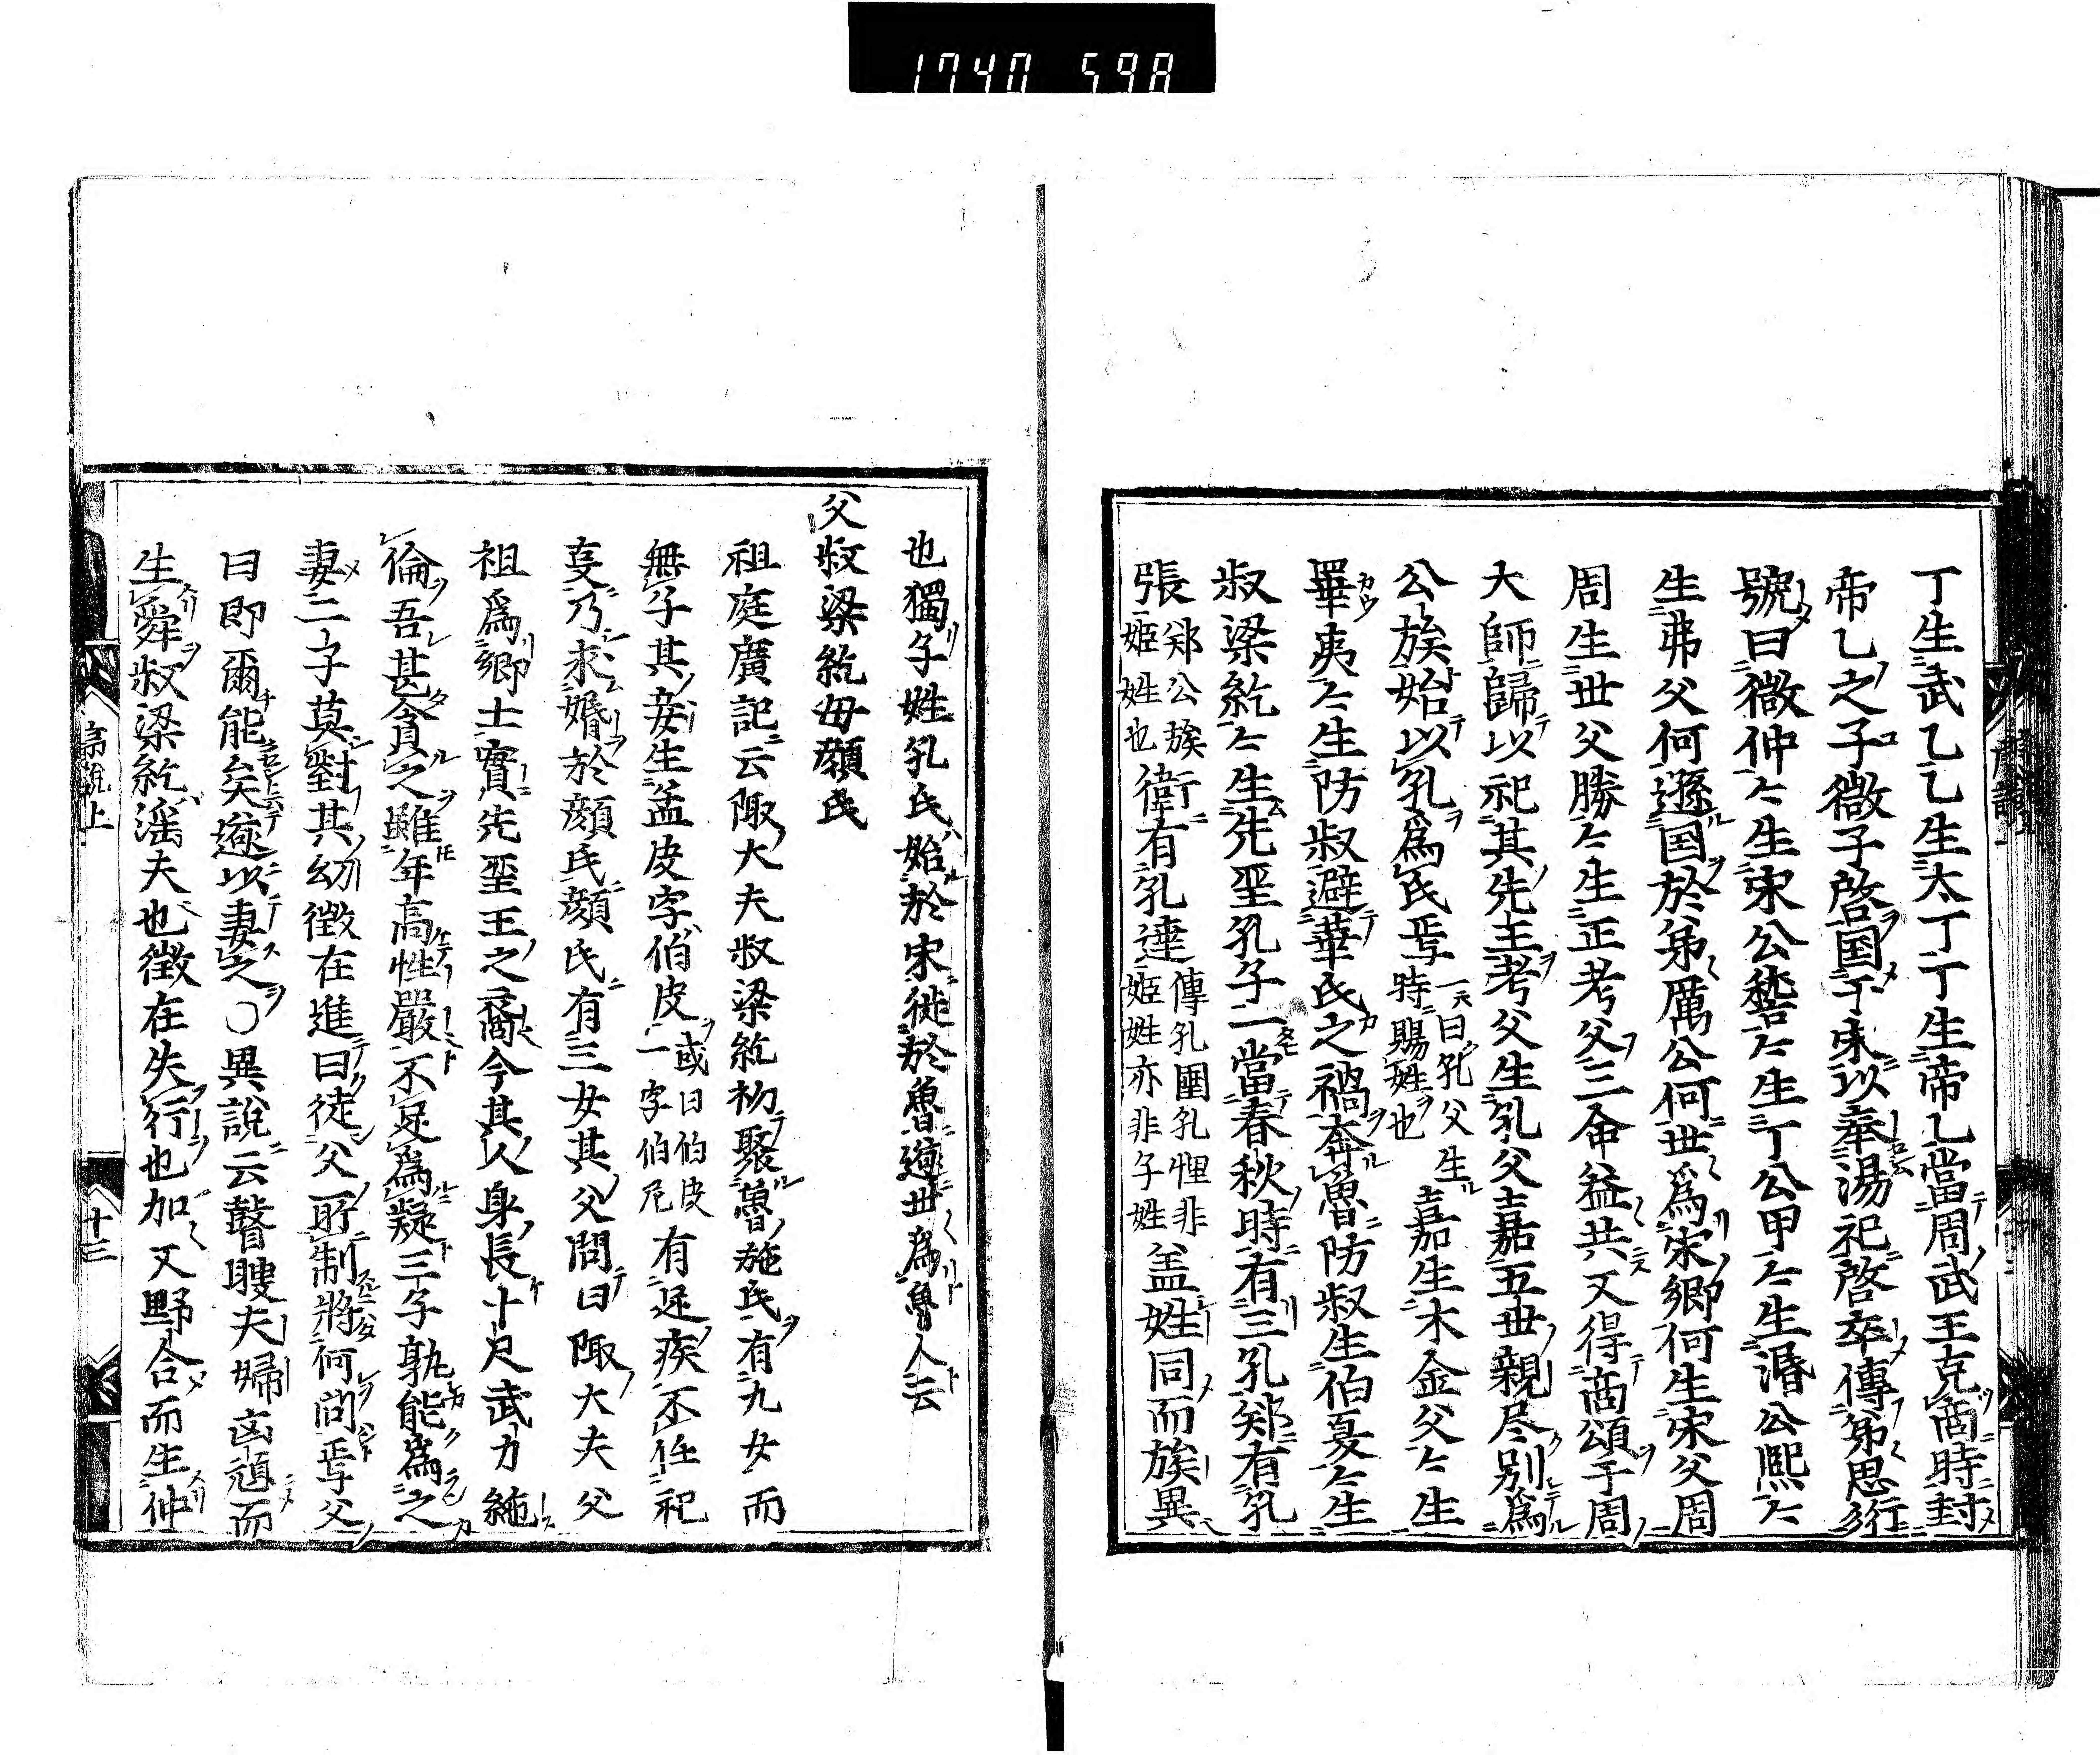 1740 598
丁生武乙乙生太丁丁生帝乙當周武王克商時封
帝乙之子微子啓国于宋以奉湯祀啓卒傳弟思衍
號曰微仲々生宋公稽々生丁公甲々生湣公熙々
生弗父何遜国於弟厲公何世爲宋卿何生宋父周
周生世父勝々生正考父三命益共又得商頌于周
大師歸以祀其先王考父生孔父嘉五世親尽別爲
公族始以孔爲氏焉一曰孔父生時賜姓也嘉生木金父々生
睪夷々生防叔避華氏之禍奔魯防叔生伯夏々生
叔梁紇々生先聖孔子二當春秋時有三孔郑有孔
張郑公族姬姓也衛有孔達傳孔圉孔悝非姬姓亦非子姓盖姓同而族異
也獨子姓孔氏始於宋徙於魯遂世爲魯人云
父叔梁紇母顏氏
祖庭廣記云陬大夫叔梁紇初聚魯施氏有九女而
無子其妾生孟皮字伯皮或曰伯皮一字伯尼有足疾不任祀
叓乃求婚於顏氏顏氏有三女其父問曰陬大夫父
祖爲卿士實先聖王之裔今其人身長十尺武力絁
倫吾甚貪之雖年高性嚴不足爲疑三子孰能爲之
妻二子莫對其幼徵在進曰徒父所制將何問焉父
曰即爾能矣遂以妻之〇異說云瞽瞍夫婦凶頑而
生舜叔梁紇滛夫也徵在失行也加又野合而生仲
十三